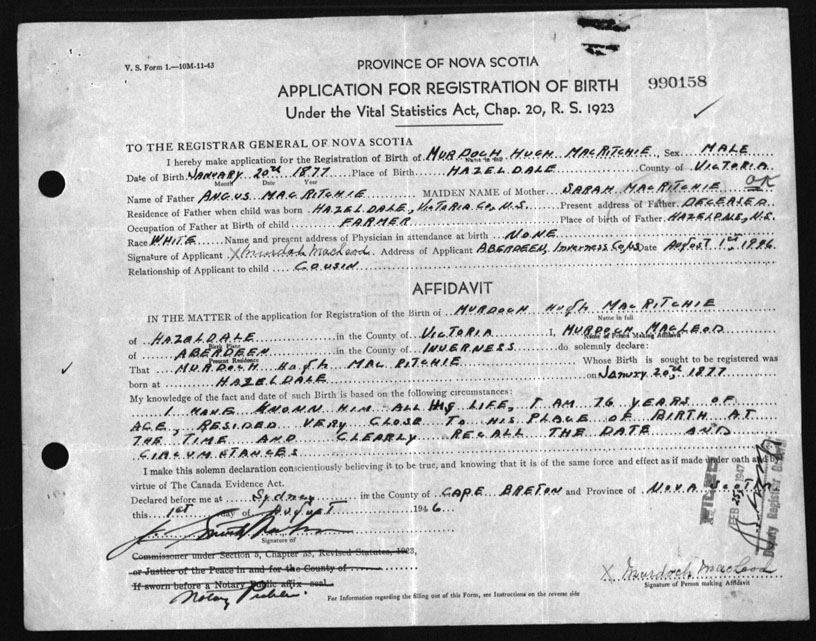 V. S. Form 1.—10M-11-43
PROVINCE OF NOVA SCOTIA
APPLICATION FOR REGISTRATION OF BIRTH
990158
Under the Vital Statistics Act, Chap. 20, R. S. 1923
TO THE REGISTRAR GENERAL OF NOVA SCOTIA
I hereby make application for the Registration of Birth of MURDOCH HUGH MACRITCHIE, Sex MALE
Name in full
Date of Birth JANUARY 20th 1877 Place of Birth HAZELDALE County of VICTORIA
Month Date Year
OK
Name of Father ANGUS MACRITCHIE MAIDEN NAME of Mother SARAH MACRITCHIE
Residence of Father when child was born HAZELDALE, VICTORIA CO, N.S. Present address of Father DECEASED
Occupation of Father at Birth of child FARMER Place of birth of Father HAZELDALE, N.S.
Race WHITE Name and present address of Physician in attendance at birth NONE
Signature of Applicant X Murdoch MacLeod Address of Applicant ABERDEEN, INVERNESS Co NS Date August 1st, 1946
Relationship of Applicant to child COUSIN
AFFIDAVIT
IN THE MATTER of the application for Registration of the Birth of MURDOCH HUGH MACRITCHIE
Name in full
of HAZALDALE in the County of VICTORIA I, MURDOCH MACLEOD
Birth Place Name of Person Making Affidavit
of ABERDEEN in the County of INVERNESS do solemnly declare:
Present Residence
That MURDOCH Hugh MACRITCHIE Whose Birth is sought to be registered was
born at HAZELDALE on January 20th 1877
My knowledge of the fact and date of such Birth is based on the following circumstances:
I HAVE KNOWN HIM ALL HIS LIFE, I AM 76 YEARS OF
AGE, RESIDED VERY CLOSE TO HIS PLACE OF BIRTH AT
THE TIME AND CLEARLY RECALL THE DATE AND
CIRCUMSTANCES
I make this solemn declaration conscientiously believing it to be true, and knowing that it is of the same force and effect as if made under oath and by
virtue of The Canada Evidence Act.
Declared before me at Sydney in the County of CAPE BRETON and Province of NOVA SCOTIA
this 1st day of August 1946
Signature of
Commissioner under Section 5, Chapter 38, Revised Statutes, 1923,
or Justice of the Peace in and for the County of
If sworn before a Notary Public affix seal
Notary Public
FILED
FEB 25 1947
Deputy Registrar General
X Murdoch MacLeod
Signature of Person making Affidavit
For Information regarding the filling out of this Form, see Instructions on the reverse side